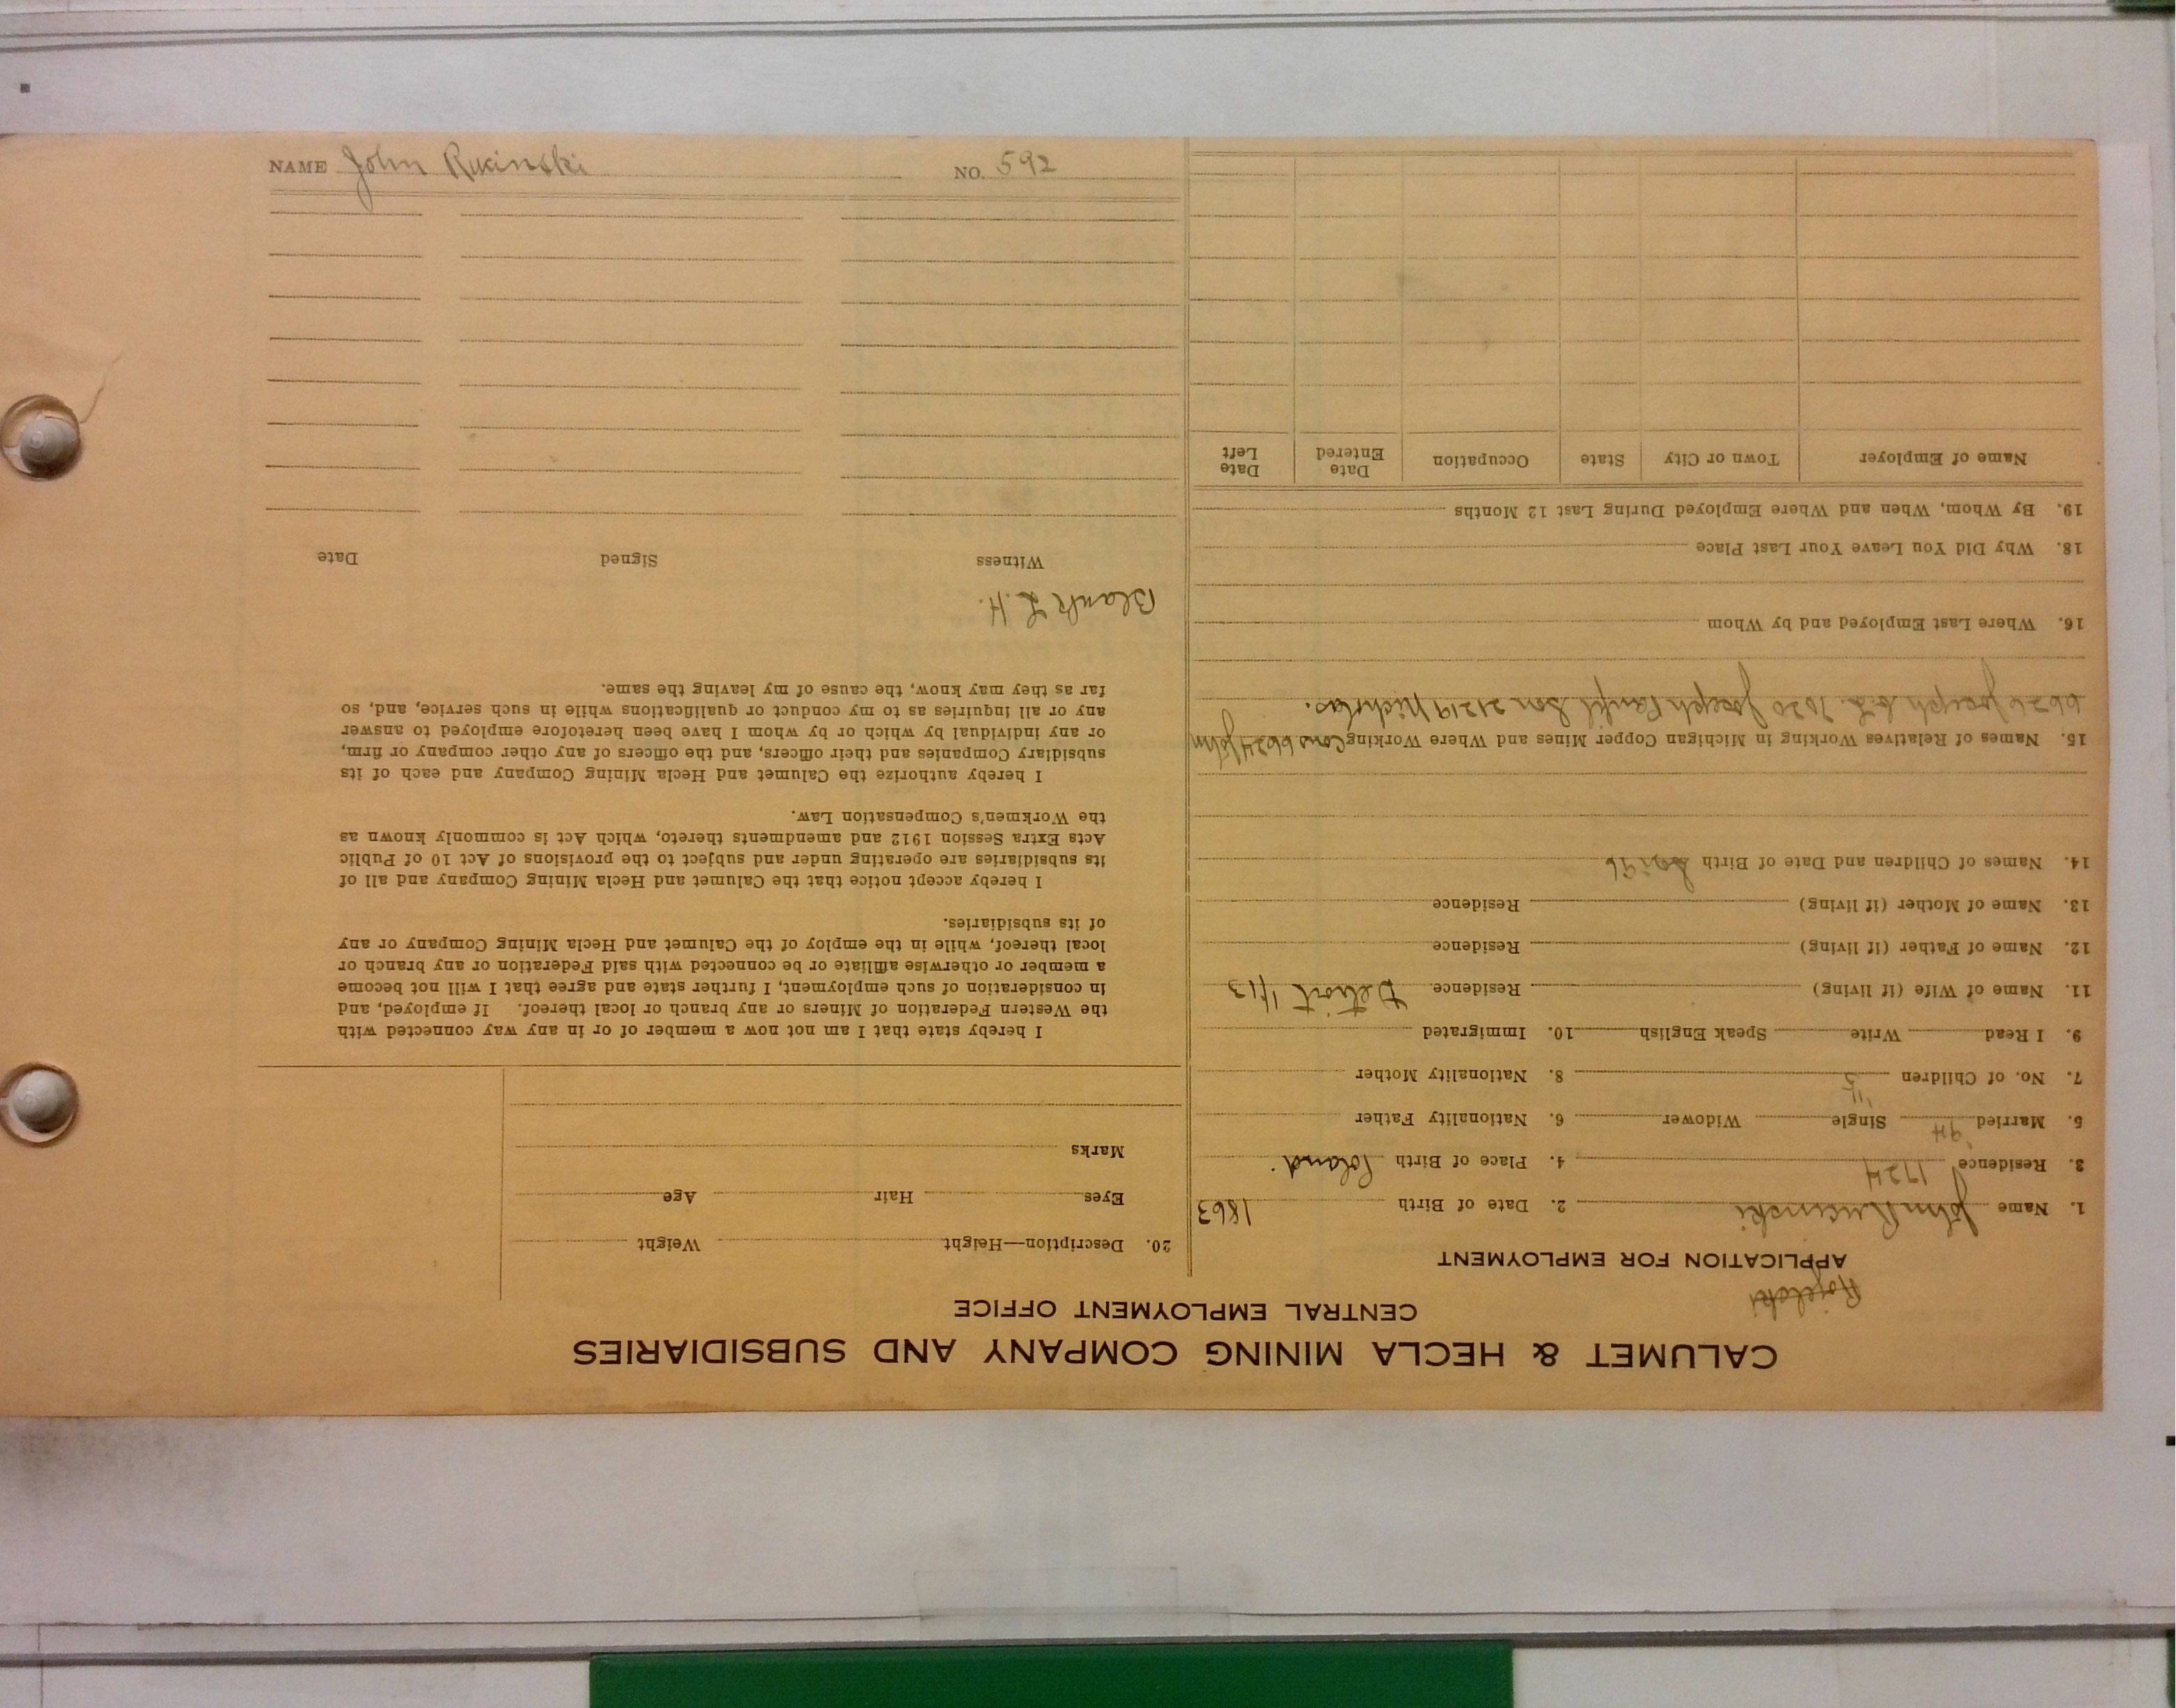 CALUMET & HECLA MINING COMPANY AND SUBSIDIARIES
CENTRAL EMPLOYMENT OFFICE
APPLICATION FOR EMPLOYMENT
1. Name John Rucinski 2. Date of Birth 1863
3. Residence 1724 4. Place of Birth Poland
5. Married Single Widower 6. Nationality Father
7. No. of Children 5 8. Nationality Mother
9. I Read Write Speak English 10. Immigrated
11. Name of Wife (if living) Residence Detroit 1/13
12. Name of Father (if living) Residence
13. Name of Mother (if living) Residence
14. Names of Children and Date of Birth
15. Names of Relatives Working in Michigan Copper Mines and Where Working Cons 6624 John
6626 Joseph 7020 Joseph Son 21219 Nicholas.
16. Where Last Employed and by Whom
18. Why Did You Leave Your Last Place
19. By Whom, When and Where Employed During Last 12 Months
Name of Employer Town or City State Occupation Date Entered Date Left
20. Description—Height Weight
Eyes Hair Age
Marks
I hereby state that I am not now a member of or in any way connected with
the Western Federation of Miners or any branch or local thereof. If employed, and
in consideration of such employment, I further state and agree that I will not become
a member or otherwise affiliate or be connected with said Federation or any branch or
local thereof, while in the employ of the Calumet and Hecla Mining Company or any
of its subsidiaries.
I hereby accept notice that the Calumet and Hecla Mining Company and all of
its subsidiaries are operating under and subject to the provisions of Act 10 of Public
Acts Extra Session 1912 and amendments thereto, which Act is commonly known as
the Workmen's Compensation Law.
I hereby authorize the Calumet and Hecla Mining Company and each of its
subsidiary Companies and their officers, and the officers of any other company or firm,
or any individual by which or by whom I have been heretofore employed to answer
any or all inquiries as to my conduct or qualifications while in such service, and, so
far as they may know, the cause of my leaving the same.
Blank L.H.
Witness Signed Date
NAME John Rucinski NO. 592